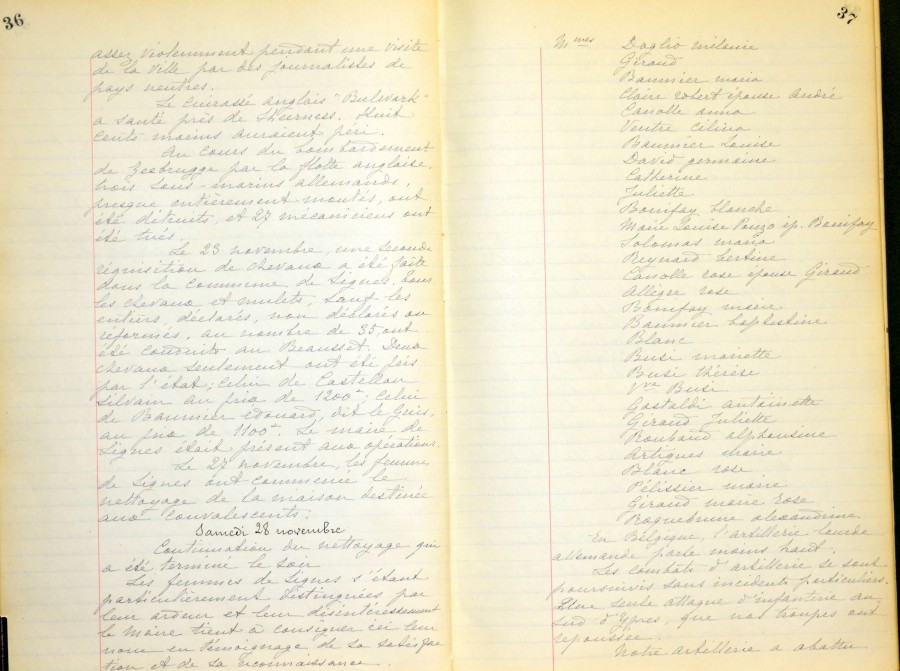 36
assez violemment pendant une visite
de la ville par des journalistes de
pays neutres.
Le cuirassé anglais "Bulwark"
a sauté près de Sheerness. Huit
cents marins auraient péri.
Au cours du bombardement
de Zeebrugge par la flotte anglaise,
trois sous-marins allemands,
presque entièrement montés, ont
été détruits, et 27 mécaniciens ont
été tués.
Le 23 novembre, une seconde
réquisition de chevaux a été faite
dans la commune de Signes, tous
les chevaux et mulets, sauf les
entiers, déclarés, non déclarés ou
réformés, au nombre de 35, ont
été conduits au Beausset. Deux
chevaux seulement ont été pris
par l'état; celui de Castellan
Silvain au prix de 1200f; celui
de Baumier édouard, dit le Gris,
au prix de 1100f. Le maire de
Signes était présent aux opérations.
Le 27 novembre, les femmes
de Signes ont commencé le
nettoyage de la maison destinée
aux convalescents.
Samedi 28 novembre
Continuation du nettoyage qui
a été terminé le soir
Les femmes de Signes s'étant
particulièrement distinguées par
leur ardeur et leur désintéressement
le Maire tient à consigner ici leur
nom en témoignage de sa satisfac
tion et de sa reconnaissance.
37
Mmes Daglio mélanie
Giraud
Baumier maria
Claire robert épouse André
Canolle anna
Ventre Célina
Baumier Louise
David germaine
Catherine
Juliette
Bonifay blanche
Marie Louise Panzo ép. Bonifay
Solomas maria
Reynard bertine
Canolle rose épouse Giraud
Allègre rose
Bonifay marie
Baumier baptistine
Blanc
Busi mariette
Busi thérèse
Vve Busi
Gastaldi antoinette
Giraud Juliette
Roubaud alphonsine
Artigues marie
Blanc rose
Pélissier marie
Giraud marie rose
Roquebrune alexandrine
En Belgique, l'artillerie lourde
allemande parle moins haut.
Les combats d'artillerie se sont
poursuivis sans incidents particuliers.
Une seule attaque d'infanterie au
sud d'Ypres, que nos troupes ont
repoussée.
Notre artillerie a abattu